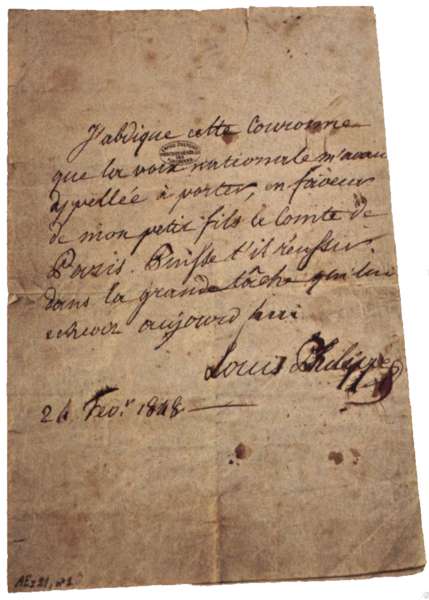 J'abdique cette Couronne
que la voix nationale m'avait
appellée à porter, en faveur
de mon petit fils le Comte de
Paris. Puisse t'il réussir
dans la grande tâche qui lui
echeoir aujourd'hui
Louis Philippe
24 Fevr. 1848
AE I 21, n° 2